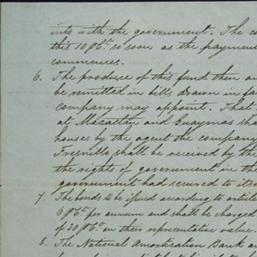 into with the government. The co
this 10 p%. is soon as the payment
commences.
6. The produce of this fund then an
be remitted in bills drawn in fa
company may appoint. That
at Mazatlan and Guaymas sha
houses by the agent the company
Fresnillo shall be received by the
the rights of government in the
government had secured to
7. The bonds to be issued according to article
6 p%. per annum and shall be charged
of 30 p%. on their representative value.
8. The National Amortization Bank